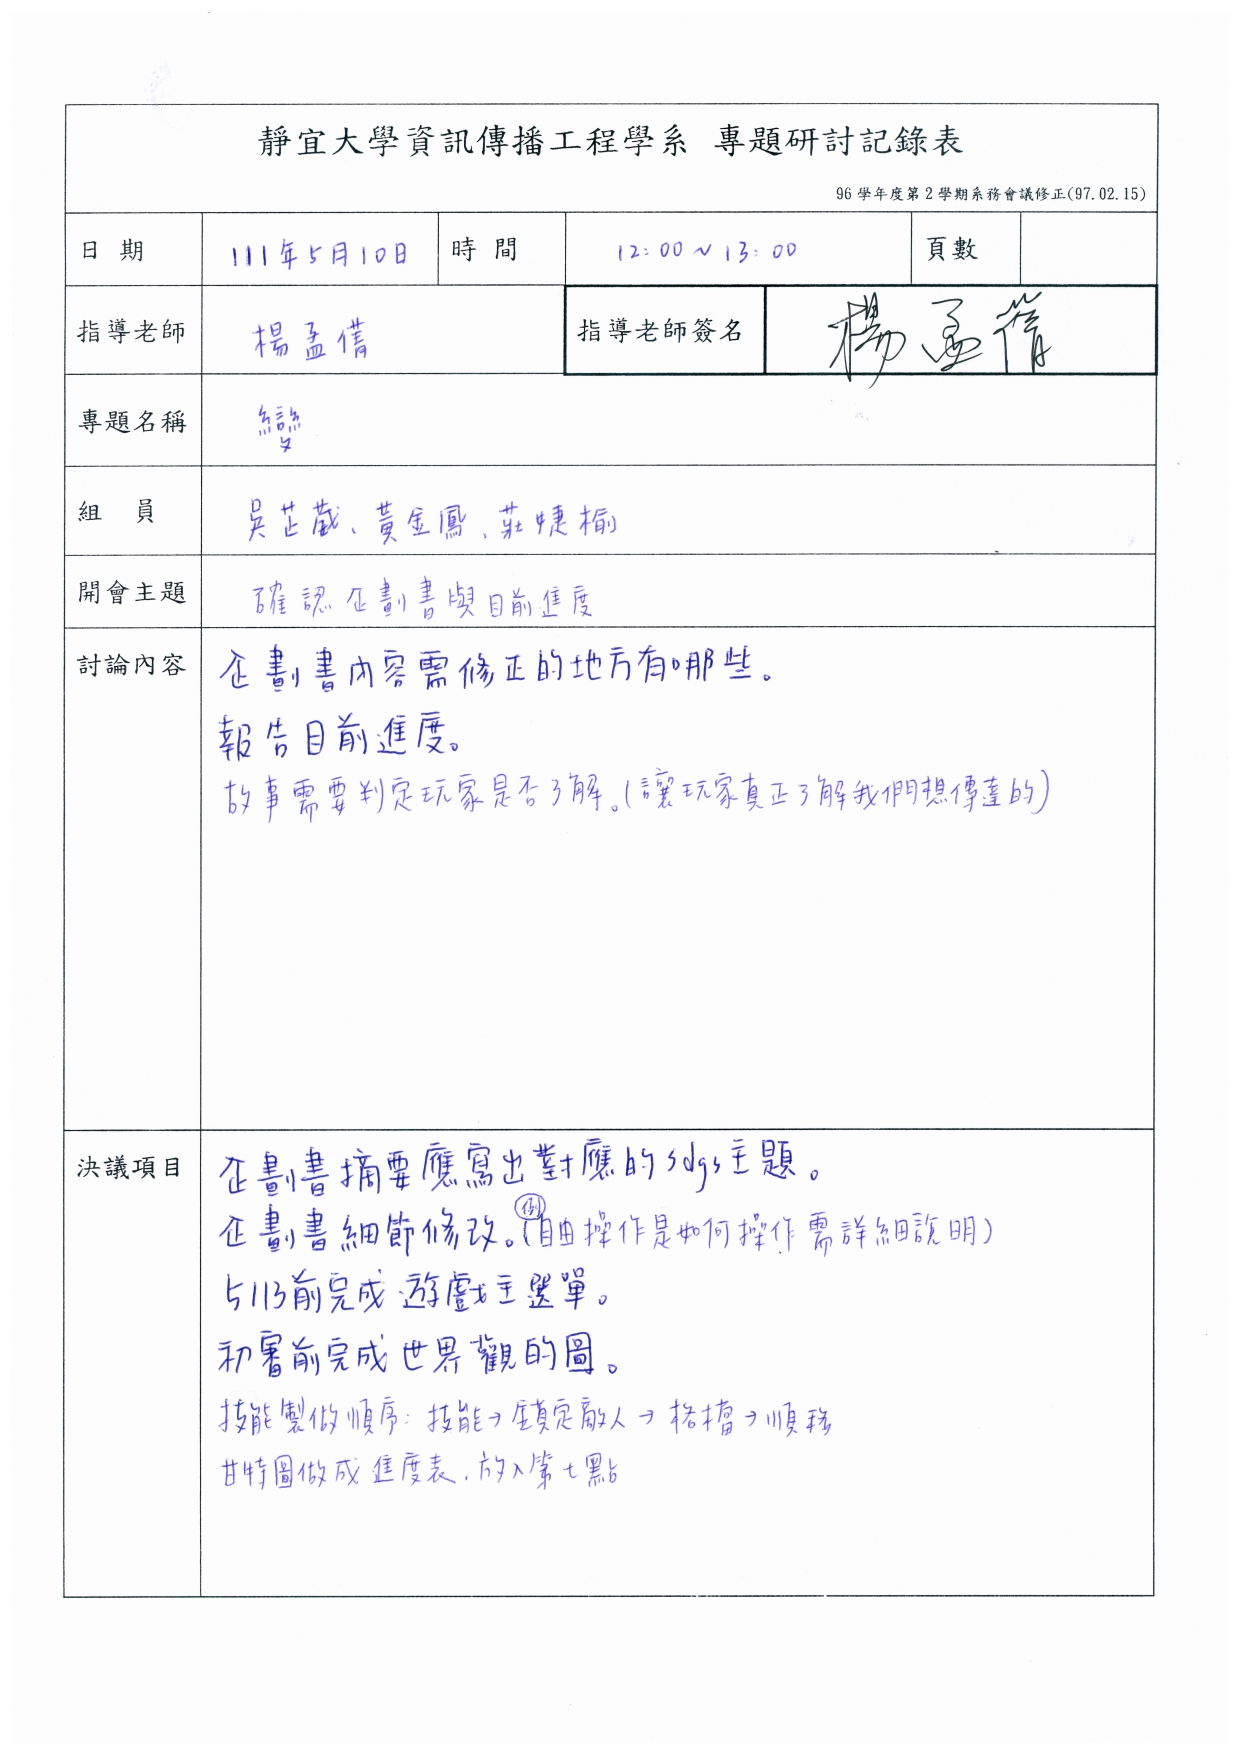 靜宜大學資訊傳播工程學系 專題研討記錄表
96 學年度第 2 學期系務會議修正(97.02.15)
日 期 111年5月10日 時 間 12:00~13:00 頁數
指導老師 楊孟蒨 指導老師簽名 楊孟蒨
專題名稱 變
組 員 吳芷葳、黃金鳳、莊婕榆
開會主題 確認企劃書與目前進度
討論內容 企劃書內容需修正的地方有哪些。
報告目前進度。
故事需要判定玩家是否了解。(讓玩家真正了解我們想傳達的)
決議項目 企劃書摘要應寫出對應的sdgs主題。
企劃書細節修改。(例自由操作是如何操作需詳細說明)
5/13前完成遊戲主選單。
初審前完成世界觀的圖。
技能製做順序:技能→鎖定敵人→格檔→順移
甘特圖做成進度表、放入第七點